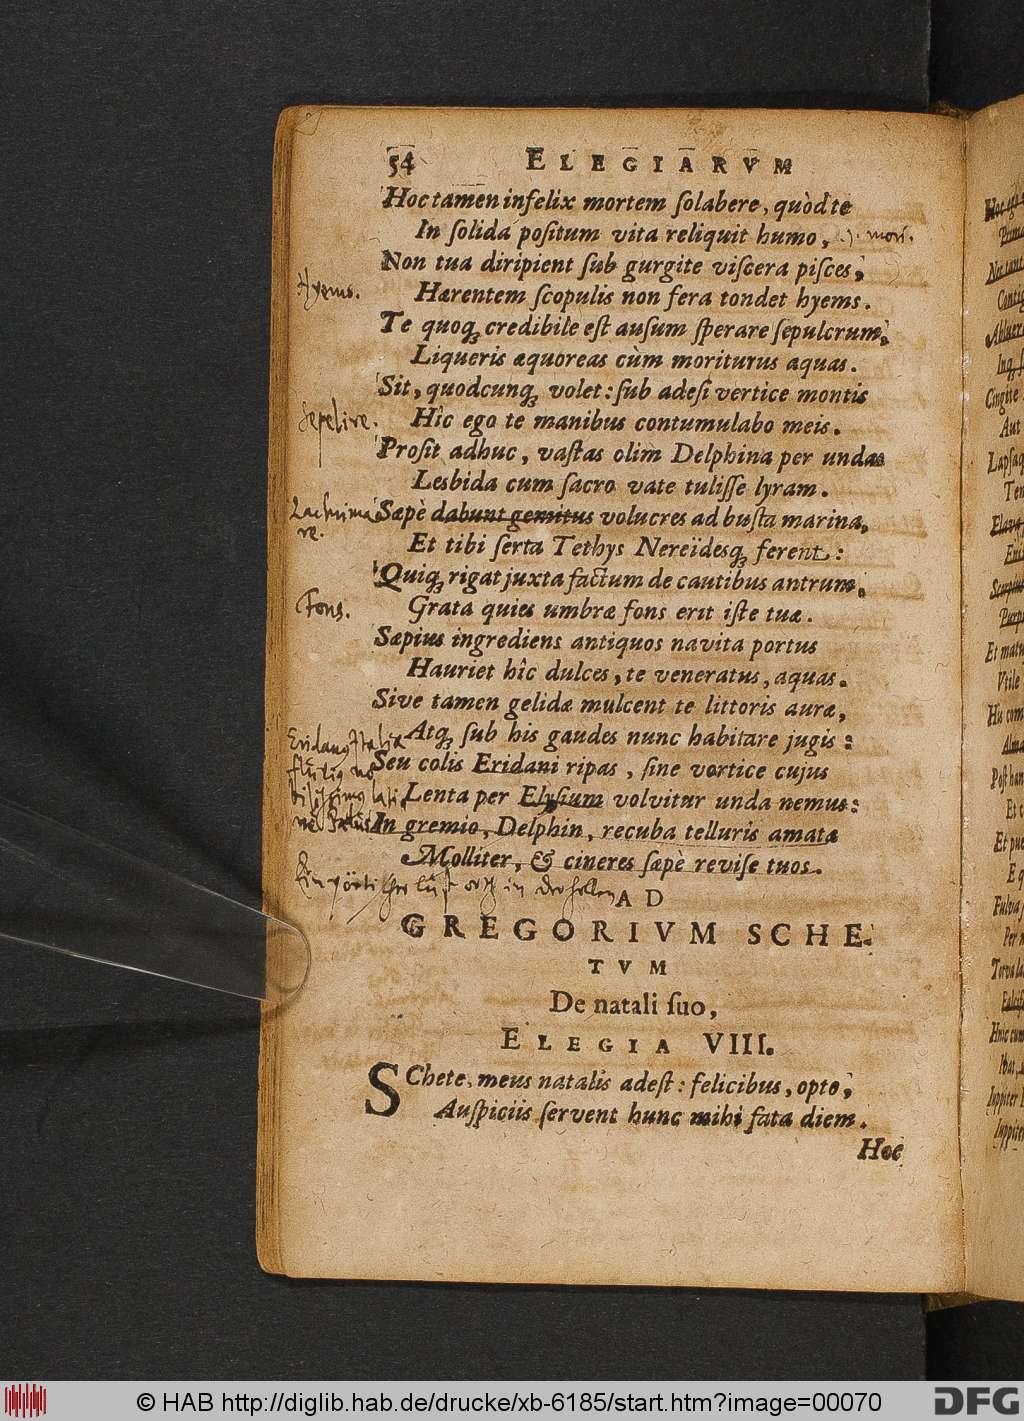 54 ELEGIARVM
Hoc tamen infelix mortem ſolabere, quòd te
In ſolida poſitum vita reliquit humo, .j. mori.
Non tua diripient ſub gurgite viſcera piſces,
Hyems. Hærentem ſcopulis non fera tondet hyems.
Te quoq; credibile eſt auſum ſperare ſepulcrum,
Liqueris æquoreas cùm moriturus aquas.
Sit, quodcunq; volet: ſub adeſi vertice montis
Sepelire. Hîc ego te manibus contumulabo meis.
Proſit adhuc, vaſtas olim Delphina per undas
Lesbida cum ſacro vate tuliſſe lyram.
Lachrima Sæpè dabunt gemitus volucres ad buſta marinæ,
re. Et tibi ſerta Tethys Nereïdesq; ferent:
Quiq; rigat juxta factum de cautibus antrum,
Fons. Grata quies umbræ fons erit iſte tuæ.
Sæpius ingrediens antiquos navita portus
Hauriet hîc dulces, te veneratus, aquas.
Sive tamen gelidæ mulcent te littoris auræ,
Eridanus Italiæ Atq; ſub his gaudes nunc habitare jugis:
fluvius no Seu colis Eridani ripas, ſine vortice cujus
Lenta per Elyſium volvitur unda nemus:
In gremio, Delphin, recuba telluris amatæ
Molliter, & cineres ſæpè reviſe tuos.
in
AD
GREGORIVM SCHE-
TVM
De natali ſuo,
ELEGIA VIII.
SChete, meus natalis adeſt: felicibus, opto,
Auſpiciis ſervent hunc mihi fata diem.
Hoc
Hoc
Cingite
Aut
Et matu
Vtile
Poſt han
Et
Et pue
Per
Iuppiter
© HAB http://diglib.hab.de/drucke/xb-6185/start.htm?image=00070
DFG